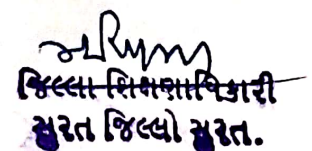 જિલ્લા શિક્ષણાધિકારી
સુરત જિલ્લો સુરત.